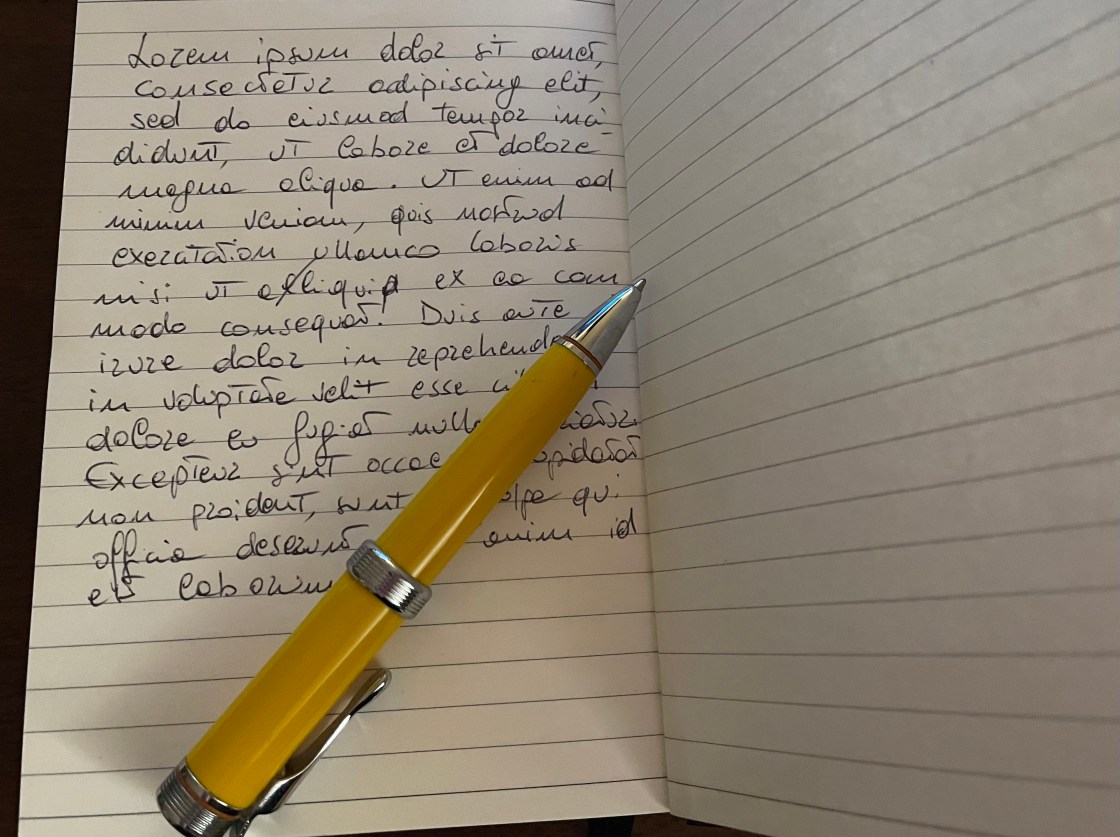 Lorem ipsum dolor sit amet,
consectetur adipiscing elit,
sed do eiusmod tempor inci-
didunt, ut labore et dolore
magna aliqua. Ut enim ad
minim veniam, quis nostrud
exercitation ullamco laboris
nisi ut aliquid ex ea com
modo consequat! Duis aute
irure dolor in reprehende
in voluptate velit esse
dolore eu fugiat
Excepteur sint
non proident, sunt qui
officia deserunt enim id
est laborum